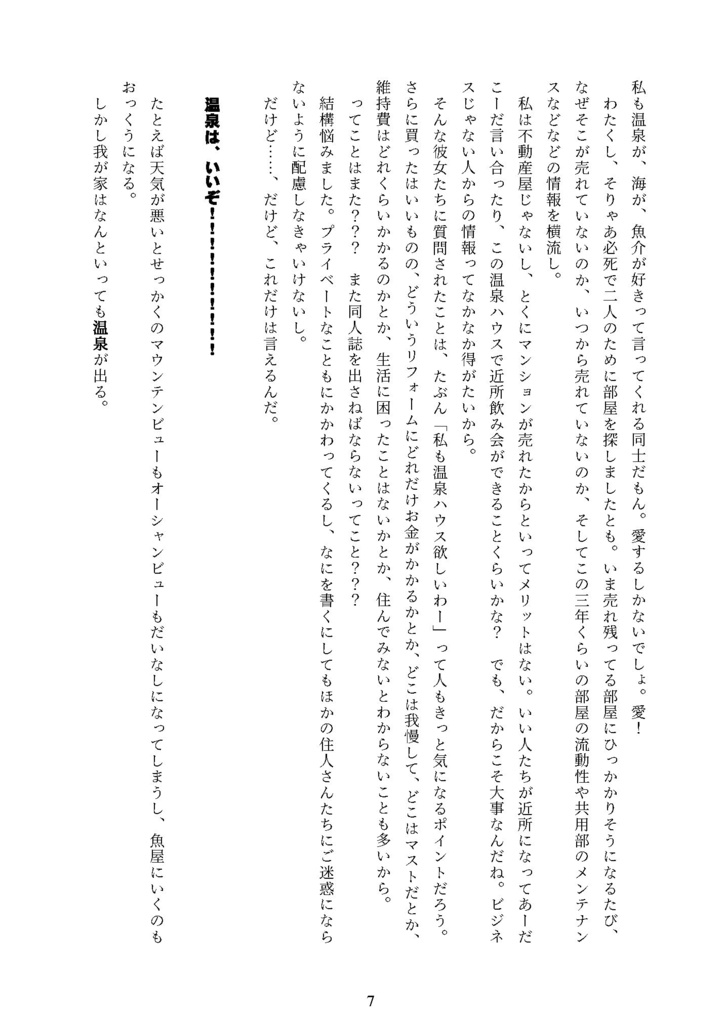 私も温泉が、海が、魚介が好きって言ってくれる同士だもん。愛するしかないでしょ。愛！
わたくし、そりゃあ必死で二人のために部屋を探しましたとも。いま売れ残ってる部屋にひっかかりそうになるたび、
なぜそこが売れていないのか、いつから売れていないのか、そしてこの三年くらいの部屋の流動性や共用部のメンテナン
スなどなどの情報を横流し。
私は不動産屋じゃないし、とくにマンションが売れたからといってメリットはない。いい人たちが近所になってあーだ
こーだ言い合ったり、この温泉ハウスで近所飲み会ができることくらいかな？　でも、だからこそ大事なんだね。ビジネ
スじゃない人からの情報ってなかなか得がたいから。
そんな彼女たちに質問されたことは、たぶん「私も温泉ハウス欲しいわー」って人もきっと気になるポイントだろう。
さらに買ったはいいものの、どういうリフォームにどれだけお金がかかるかとか、どこは我慢して、どこはマストだとか、
維持費はどれくらいかかるのかとか、生活に困ったことはないかとか、住んでみないとわからないことも多いから。
ってことはまた？？？　また同人誌を出さねばならないってこと？？？
結構悩みました。プライベートなこともにかかわってくるし、なにを書くにしてもほかの住人さんたちにご迷惑になら
ないように配慮しなきゃいけないし。
だけど……、だけど、これだけは言えるんだ。
温泉は、いいぞ！！！！！！！！！！
たとえば天気が悪いとせっかくのマウンテンビューもオーシャンビューもだいなしになってしまうし、魚屋にいくのも
おっくうになる。
しかし我が家はなんといっても温泉が出る。
7